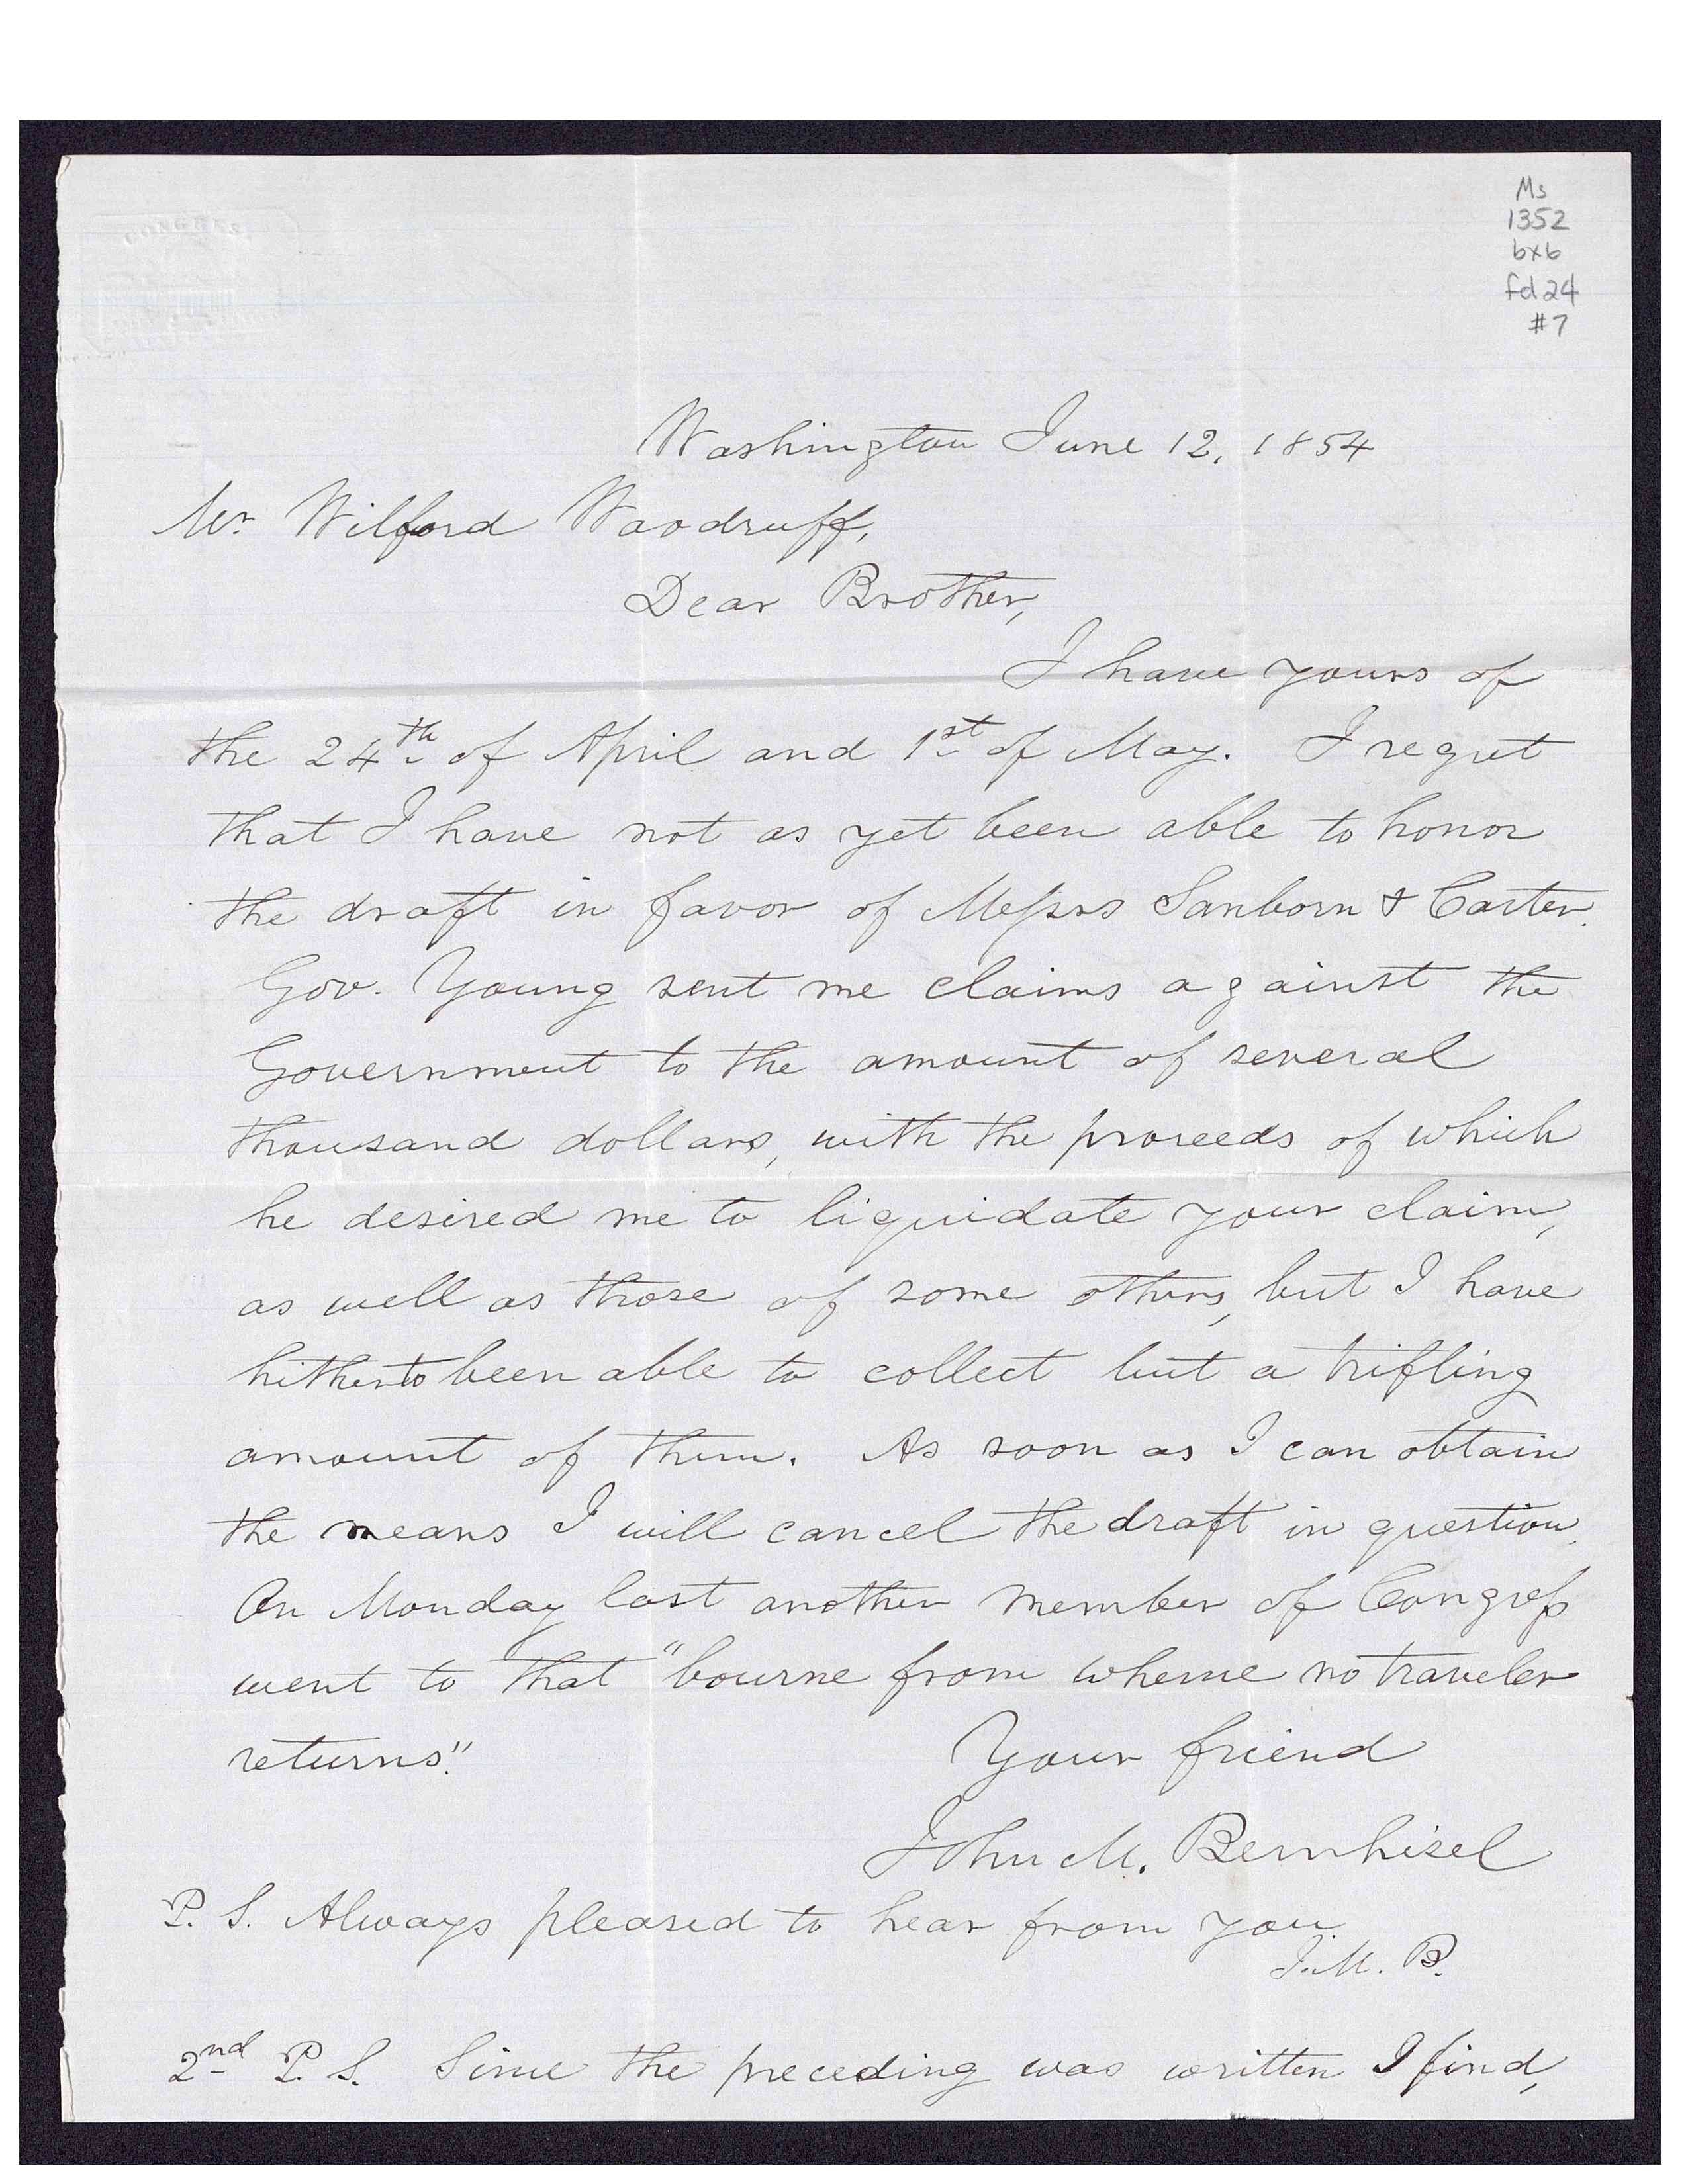 Ms
1352
bx6
fd 24
#7
Washington June 12, 1854
Mr. Wilford Woodruff,
Dear Brother,
I have yours of
the 24th of April and 1st of May. I regret
that I have not as yet been able to honor
the draft in favor of Messrs Sanborn & Carter.
Gov. Young sent me claims against the
Government to the amount of several
thousand dollars, with the proceeds of which
he desired me to liquidate your claim,
as well as those of some others, but I have
hitherto been able to collect but a trifling
amount of them. As soon as I can obtain
the means I will cancel the draft in question.
On Monday last another member of Congress
went to that "bourne from whence no traveler
returns".
Your friend
John M. Bernhisel
P. S. Always pleased to hear from you
J. M. B.
2nd P. S. Since the preceding was written I find,